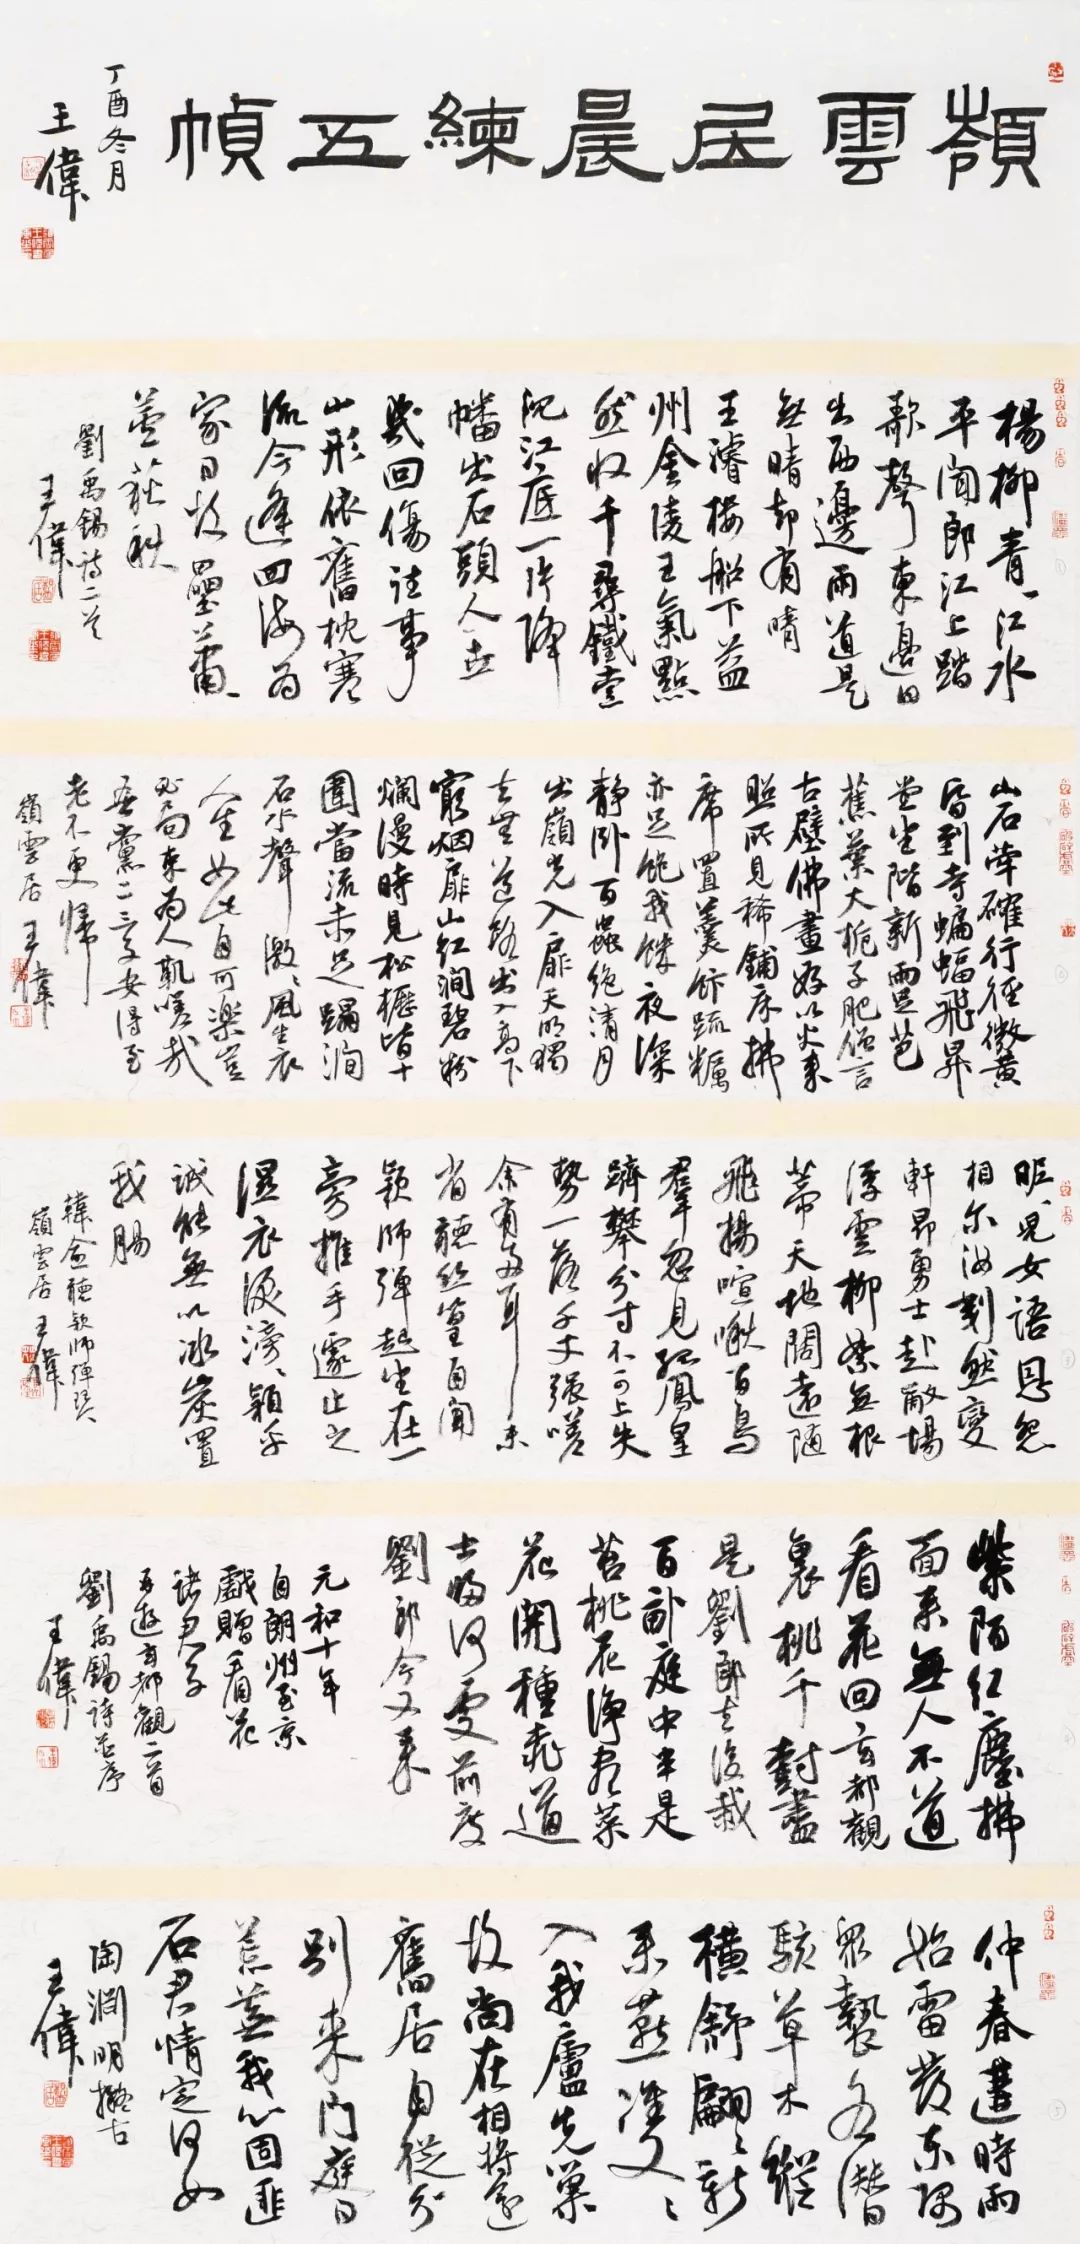 嶺雲居晨練五幀
丁酉冬月
王偉
楊柳青青江水
平聞郎江上踏
歌聲東邊日
出西邊雨道是
無晴却有晴
王濬樓船下益
州金陵王氣黯
然收千尋鐵索
沉江底一片降
幡出石頭人世
幾回傷往事
山形依舊枕寒
流今逢四海為
家日故壘蕭蕭
蘆荻秋
劉禹錫詩二首
王偉
山石犖确行徑微黃
昏到寺蝙蝠飛昇
堂坐階新雨足芭
蕉葉大梔子肥僧言
古壁佛畫好以火來
照所見稀鋪床拂
席置羹飯疏糲
亦足飽我飢夜深
静卧百蟲絶清月
出嶺光入扉天明獨
去無道路出入高下
窮烟扉山紅澗碧紛
爛漫時見松櫪皆十
圍當流赤足蹋澗
石水聲激激風生衣
人生如此自可樂豈
必局束為人鞿嗟哉
吾黨二三子安得至
老不更歸
嶺雲居王偉
昵昵兒女語恩怨
相爾汝劃然變
軒昂勇士赴敵場
浮雲柳絮無根
蒂天地闊遠隨
飛揚喧啾百鳥
羣忽見孤鳳皇
躋攀分寸不可上失
勢一落千丈强嗟
余有兩耳未
省聽絲篁自聞
穎師彈起坐在一
旁推手遽止之
濕衣淚滂滂穎乎
誠能無以冰炭置
我腸
韓愈聽穎師彈琴
嶺雲居王偉
紫陌紅塵拂
面來無人不道
看花回玄都觀
裏桃千樹盡
是劉郎去後栽
百畝庭中半是
苔桃花淨盡菜
花開種桃道
士歸何處前度
劉郎今又來
元和十年
自朗州至京
戲贈看花
諸君子
再遊玄都觀二首
劉禹錫詩并序
王偉
仲春遘時雨
始雷發東隅
眾蟄各潛
駭草木縱
橫舒翩翩新
來燕雙雙
入我廬先巢
故尚在相將還
舊居自從分
別來門庭日
荒蕪我心固匪
石君情定何如
陶淵明擬古
王偉